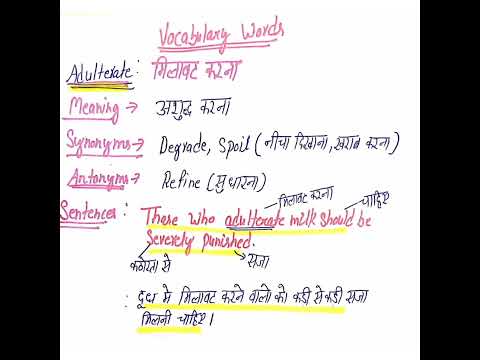 Vocabulary Words
Adulterate: मिलावट करना
Meaning → अशुद्ध करना
Synonyms → Degrade, Spoil (नीचा दिखाना, खराब करना)
Antonyms → Refine (सुधारना)
मिलावट करना चाहिए
Sentences: There who adulterate milk should be
Severely punished.
कठोरता से सजा
: दूध मे मिलावट करने वालो को कडी से कडी सजा
मिलनी चाहिए।